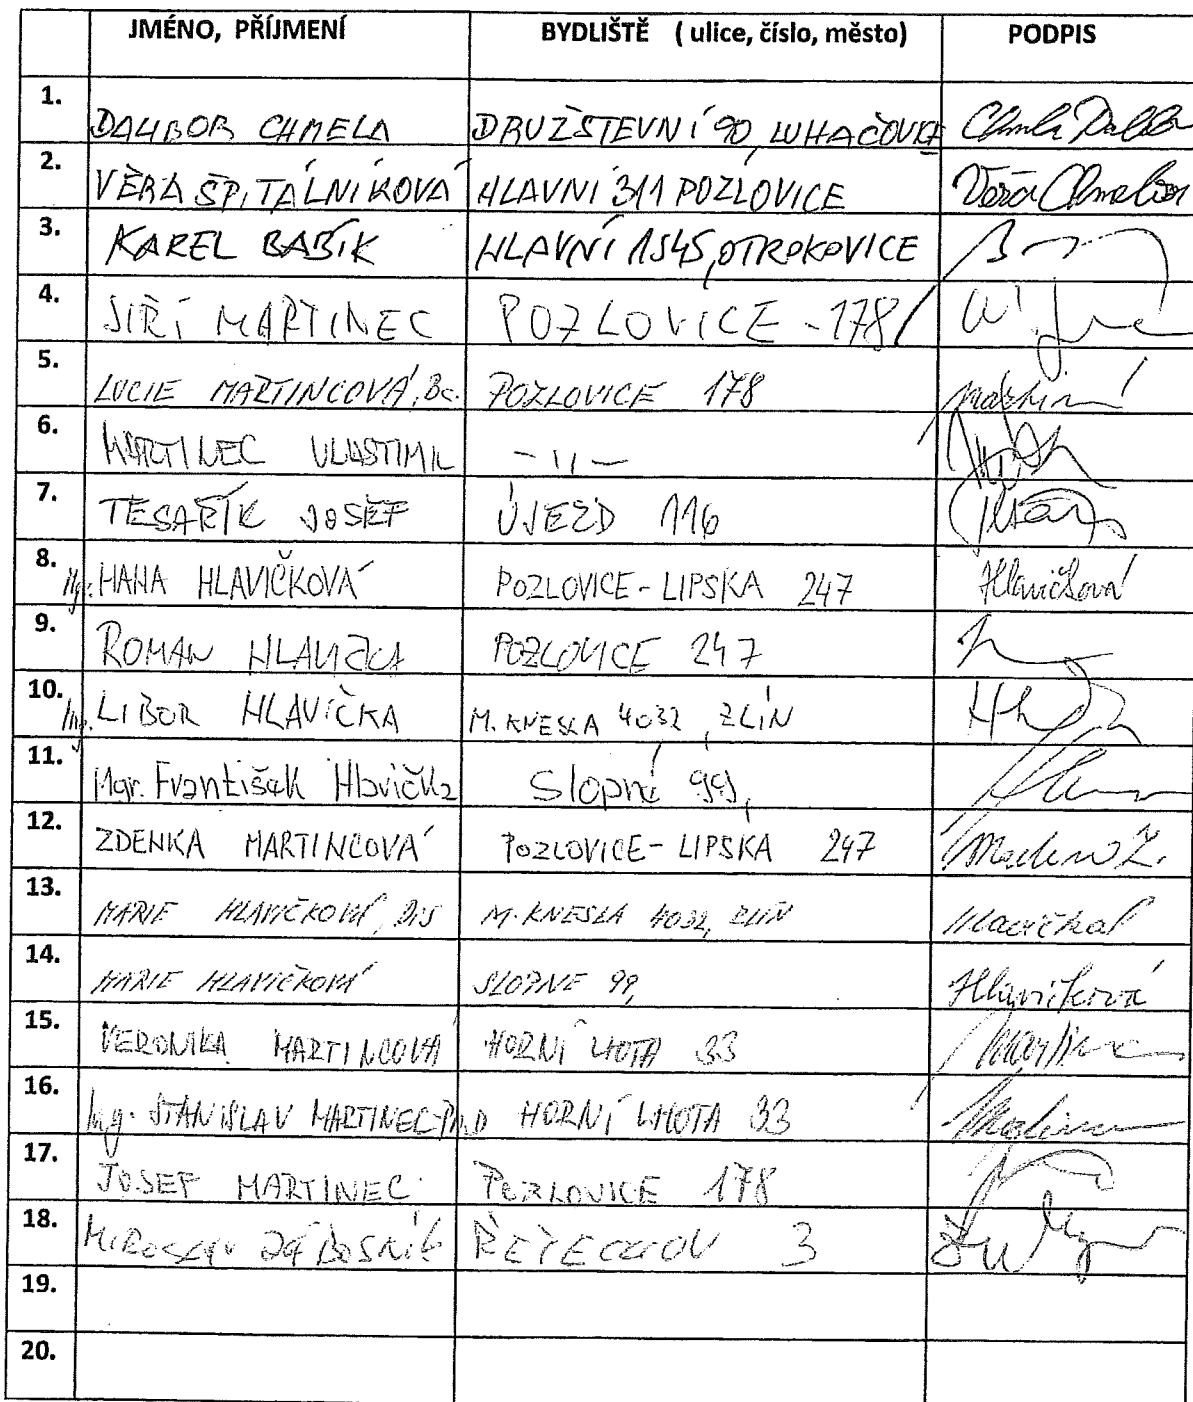 JMÉNO, PŘÍJMENÍ BYDLIŠTĚ ( ulice, číslo, město) PODPIS
1. DALIBOR CHMELA DRUŽSTEVNÍ 90, LUHAČOVICE
2. VĚRA ŠPITÁLNÍKOVÁ HLAVNÍ 311 POZLOVICE
3. KAREL BABÍK HLAVNÍ 1545, OTROKOVICE
4. JIŘÍ MARTINEC POZLOVICE - 178
5. LUCIE MARTINCOVÁ, Bc. POZLOVICE 178
6. MARTINEC VLASTIMIL - 11 -
7. TESAŘÍK JOSEF ÚJEZD 116
8. Mgr. HANA HLAVIČKOVÁ POZLOVICE - LIPSKA 247 Hlavičková
9. ROMAN HLAVIČKA POZLOVICE 247
10. Ing. LIBOR HLAVIČKA M. KNESLA 4032, ZLÍN
11. Mgr. František Hlavička Slopné 99,
12. ZDENKA MARTINCOVÁ POZLOVICE - LIPSKA 247
13. MARIE HLAVIČKOVÁ, DiS M. KNESLA 4032, ZLÍN
14. MARIE HLAVIČKOVÁ SLOPNE 99, Hlavičková
15. VERONIKA MARTINCOVÁ HORNÍ LHOTA 33
16. Ing. STANISLAV MARTINEC HORNÍ LHOTA 33
17. JOSEF MARTINEC POZLOVICE 178
18. MIROSLAV ŘETECHOV 3
19.
20.